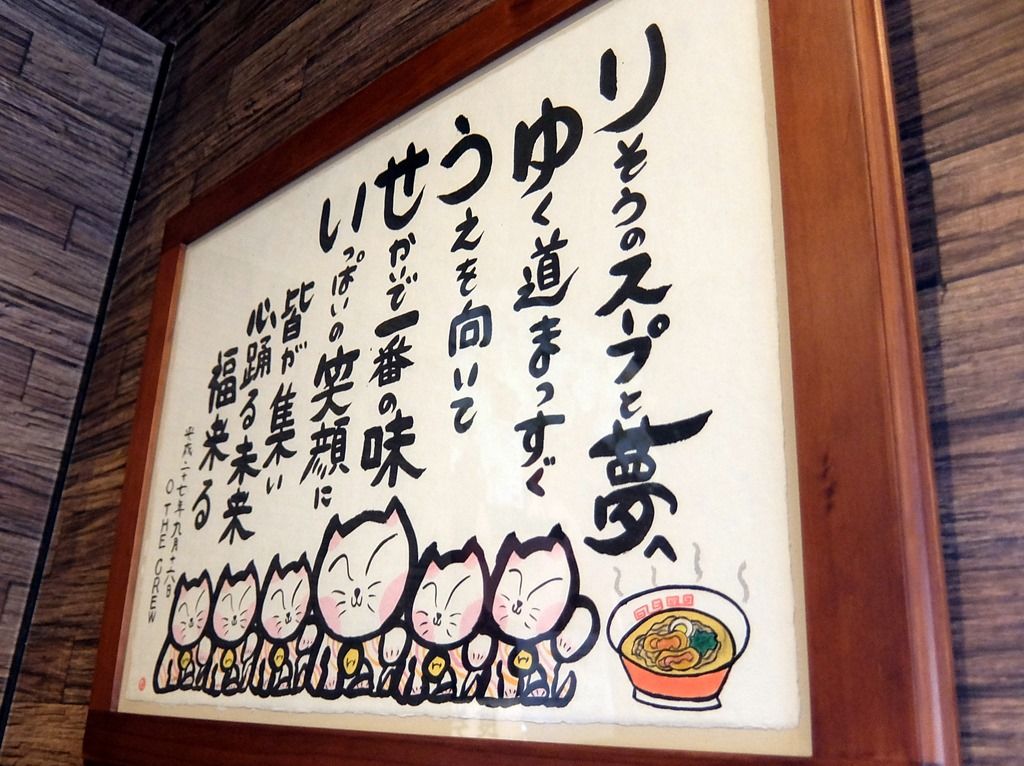 りそうのスープと夢へ
ゆく道まっすぐ
うえを向いて
せかいで一番の味
いっぱいの笑顔に
皆が集い
心踊る未来
福来る
平成二十七年九月十六日
O THE CREW